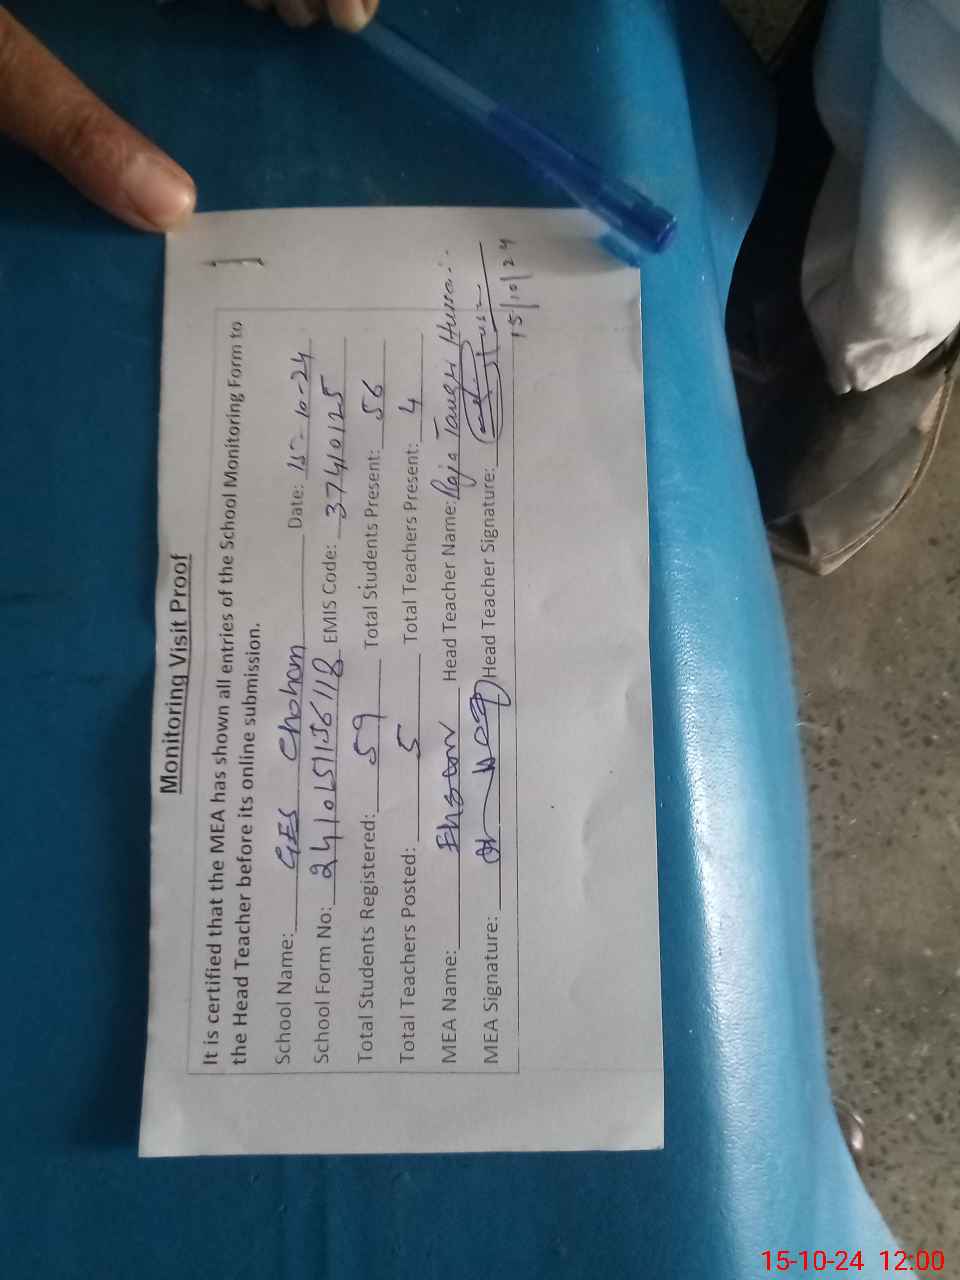 Monitoring Visit Proof
It is certified that the MEA has shown all entries of the School Monitoring Form to
the Head Teacher before its online submission.
School Name: GES Choham Date: 15-10-24
School Form No: EMIS Code: 37410125
Total Students Registered: 59 Total Students Present: 56
Total Teachers Posted: 5 Total Teachers Present: 4
MEA Name: Head Teacher Name: Raja Hussain
MEA Signature: Head Teacher Signature:
15/10/24
15-10-24 12:00